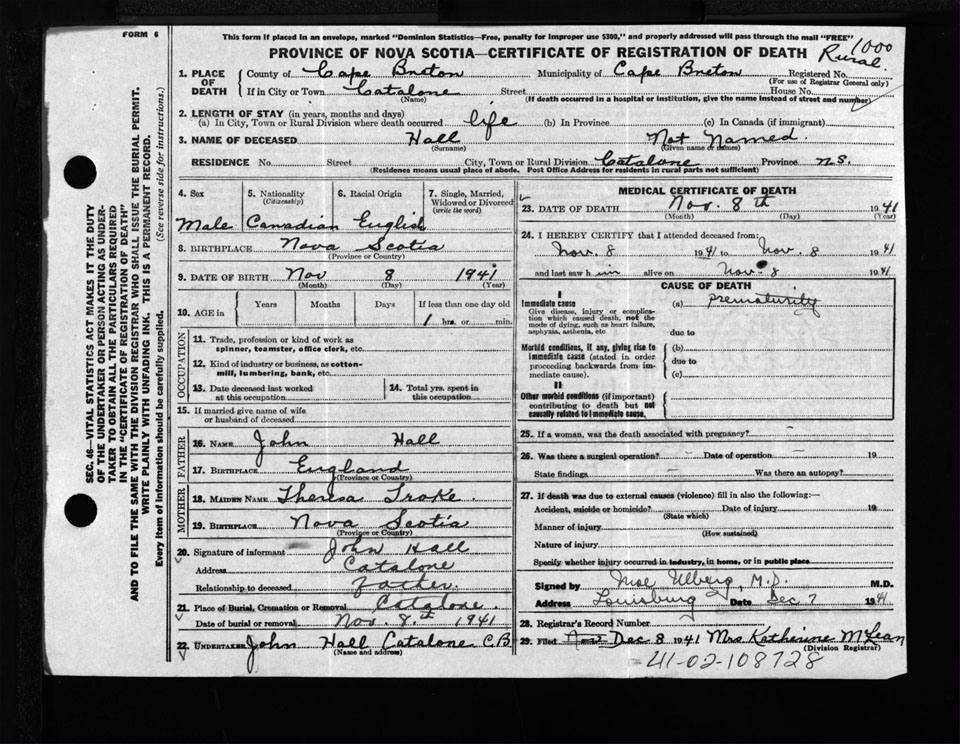 FORM 6
This form if placed in an envelope, marked "Dominion Statistics—Free, penalty for improper use $300," and properly addressed will pass through the mail "FREE"
PROVINCE OF NOVA SCOTIA—CERTIFICATE OF REGISTRATION OF DEATH
1000
Rural
1. PLACE OF DEATH County of Cape Breton Municipality of Cape Breton Registered No.
(For use of Registrar General only)
If in City or Town Catalone Street House No.
(Name) (If death occurred in a hospital or institution, give the name instead of street and number)
2. LENGTH OF STAY (in years, months and days)
(a) In City, Town or Rural Division where death occurred life (b) In Province (c) In Canada (if immigrant)
3. NAME OF DECEASED Hall Not Named.
(Surname) (Given name or names)
RESIDENCE No. Street City, Town or Rural Division Catalone Province N.S.
(Residence means usual place of abode. Post Office Address for residents in rural parts not sufficient)
4. Sex 5. Nationality (Citizenship) 6. Racial Origin 7. Single, Married, Widowed or Divorced (write the word)
Male Canadian English
8. BIRTHPLACE Nova Scotia
(Province or Country)
9. DATE OF BIRTH Nov 8 1941
(Month) (Day) (Year)
10. AGE in Years Months Days If less than one day old
1 hrs. or min.
OCCUPATION
11. Trade, profession or kind of work as spinner, teamster, office clerk, etc.
12. Kind of industry or business, as cotton-mill, lumbering, bank, etc.
13. Date deceased last worked at this occupation 14. Total yrs. spent in this occupation
15. If married give name of wife or husband of deceased
FATHER
16. NAME John Hall
17. BIRTHPLACE England
(Province or Country)
MOTHER
18. MAIDEN NAME Theresa Troke
19. BIRTHPLACE Nova Scotia
(Province or Country)
20. Signature of informant John Hall
Address Catalone
Relationship to deceased Father.
21. Place of Burial, Cremation or Removal Catalone.
Date of burial or removal Nov. 8th 1941
22. UNDERTAKER John Hall Catalone C.B.
(Name and address)
MEDICAL CERTIFICATE OF DEATH
23. DATE OF DEATH Nov. 8th 1941
(Month) (Day) (Year)
24. I HEREBY CERTIFY that I attended deceased from:
Nov. 8 1941 to Nov. 8 1941
and last saw him alive on Nov. 8 1941
CAUSE OF DEATH
I
Immediate cause (a) prematurity
Give disease, injury or complication which caused death, not the mode of dying, such as heart failure, asphyxia, asthenia, etc
due to
Morbid conditions, if any, giving rise to immediate cause (stated in order proceeding backwards from immediate cause).
(b)
due to
(c)
II
Other morbid conditions (if important) contributing to death but not causally related to immediate cause.
25. If a woman, was the death associated with pregnancy?
26. Was there a surgical operation? Date of operation 19
State findings Was there an autopsy?
27. If death was due to external causes (violence) fill in also the following:—
Accident, suicide or homicide? Date of injury 19
(State which)
Manner of injury
(How sustained)
Nature of injury
Specify whether injury occurred in industry, in home, or in public place
Signed by M.D. M.D.
Address Louisburg Date Dec 7 1941
28. Registrar's Record Number
29. Filed Dec 8 1941 Mrs Katherine McLean
(Division Registrar)
41-02-108728
SEC. 46—VITAL STATISTICS ACT MAKES IT THE DUTY
OF THE UNDERTAKER OR PERSON ACTING AS UNDER-
TAKER TO OBTAIN ALL THE PARTICULARS REQUIRED
IN THE "CERTIFICATE OF REGISTRATION OF DEATH"
AND TO FILE THE SAME WITH THE DIVISION REGISTRAR WHO SHALL ISSUE THE BURIAL PERMIT.
WRITE PLAINLY WITH UNFADING INK. THIS IS A PERMANENT RECORD.
Every item of information should be carefully supplied. (See reverse side for instructions.)